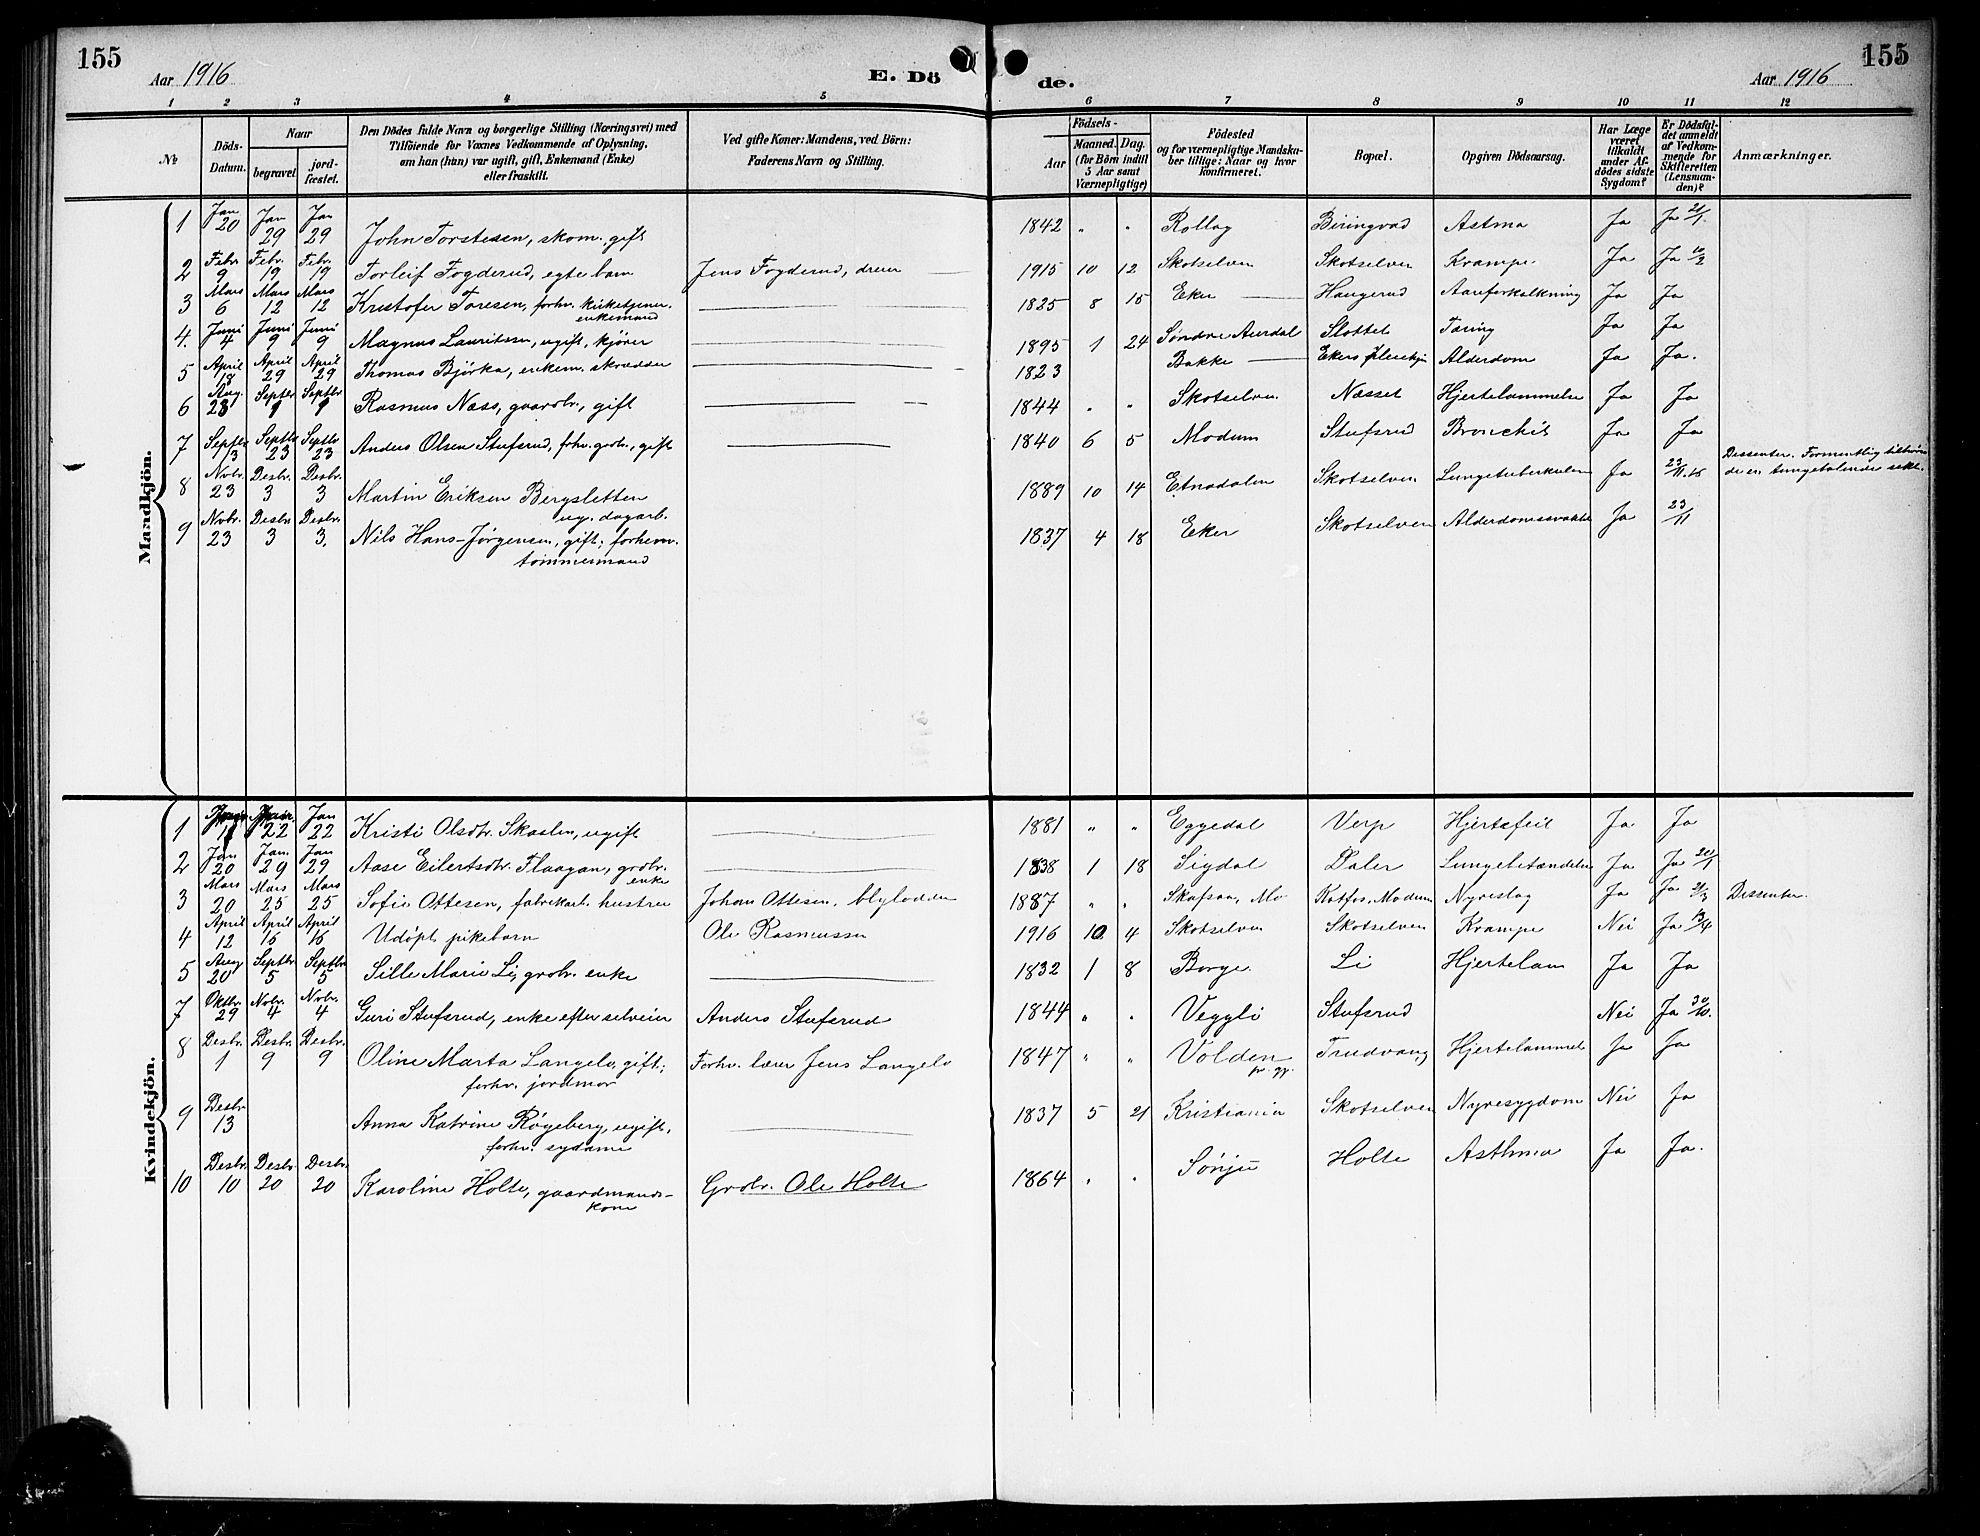 155
155
Aar 1916
E. Dö
de.
Aar 1916
1 2 3 4 5 6 7 8 9 10 11 12
№
Döds-
Datum.
Naar
begravet.
jord-
fæstet.
Den Dödes fulde Navn og borgerlige Stilling (Næringsvei) med
Tilföiende for Voxnes Vedkommende af Oplysning,
om han (hun) var ugift, gift, Enkemand (Enke)
eller fraskilt.
Ved gifte Koner: Mandens, ved Börn:
Faderens Navn og Stilling.
Födsels-
Aar
Maaned. Dag.
(for Börn indtil
5 Aar samt
Værnepligtige)
Födested
og for værnepligtige Mandska-
ber tillige: Naar og hvor
konfirmeret.
Bopæl.
Opgiven Dödsaarsag.
Har Læge
været
tilkaldt
under Af-
dödes sidste
Sygdom?
Er Dödsfal-
det anmeldt
af Vedkom-
mende for
Skifteretten
(Lensman-
den)?
Anmærkninger.
Mandkjön.
1 Jan 20 Jan 29 Jan 29 John Torstesen, skom., gift 1842 " " Rollag Biringvad Astma Ja Ja 21/1.
2 Febr. 9 Febr. 19 Febr. 19 Torleif Fogderud, egte barn Jens Fogderud, dreier 1915 10 12 Skotselven Skotselven Krampe. Ja Ja 10/2
3 Mars 6 Mars 12 Mars 12 Kristofer Toresen, forhv. kirketjener.
enkemand 1825 8 15 Eker Haugerud Aareforkalkning Ja Ja
4. Juni 4 Juni 9 Juni 9 Magnus Lauritsen, ugift, kjører 1895 1 24 Søndre Aurdal Slottet Tæring Ja Ja
5 April 18 April 29 April 29 Thomas Bjørka, enkem. skrædder 1823 Bakke Ekers Pleiehjem Alderdom Ja Ja.
6 Aug. 28 Septbr 9 Septbr 9 Rasmus Næss, gaardbr., gift 1844 " " Skotselven Næsset Hjertelammelse Ja Ja
7 Septbr 13 Septbr 23 Septbr 23 Anders Olsen Stufsrud, forhv. grdbr., gift 1840 6 5 Modum Stufsrud Bronchit Ja Ja
8 Novbr. 23 Desbr. 3 Desbr. 3 Martin Eriksen Bergsletten
ug. dagarb. 1889 10 14 Etnedalen Skotselven Lungetuberkulose Ja 23/11.16 Dissenter. Formentlig tilhøren
de en tungetalende sekt.
9 Novbr. 23 Desbr. 3 Desbr. 3. Nils Hans-Jørgensen, gift; forhenv.
tømmermand 1837 4 18 Eker Skotselven Alderdomssvakhet Ja 23/11
Kvindekjön.
1 Jan 22 Jan 22 Kristi Olsdtr. Skaslien, ugift 1881 " " Eggedal Verp Hjertefeil Ja Ja
2 Jan 20 Jan. 29 Jan 29 Aase Eilertsdtr. Flaagan, grdbr.
enke 1838 1 18 Sigdal Daler Lungebetændelse Ja Ja 20/1
3 Mars 20 Mars 25 Mars 25 Sofie Ottesen, fabrikarb. hustru Johan Ottesen, blylodder 1887 " " Skafsaa, Mo Katfos, Modum Nyreslag Ja Ja 21/3 Dissenter.
4 April 12 April 16 April 16 Udöpt pikebarn Ole Rasmussen 1916 10 4 Skotselven Skotselven Krampe Nei Ja 13/4
5 Aug 20 Septbr. 5 Septbr. 5 Sille Marie Li, grdbr. enke 1832 1 8 Borge. Li Hjertelam Ja Ja
7 Oktbr. 29 Novbr. 4 Novbr. 4 Guri Stufsrud, enke efter selveier Anders Stufsrud 1844 " . Veggli Stufsrud Nei Ja 30/10.
8 Desbr. 1 Desbr. 9 Desbr. 9 Oline Marta Langelo, gift;
forhv. jordmor Forhv. lærer Jens Langelo 1847 " " Volden pr. gj. Trudvang Hjertelammel Ja Ja
9 Desbr. 13 Anna Katrine Røgeberg, ugift,
forhv. sydame 1837 5 21 Kristiania Skotselven Nyresygdom Nei Ja
10 Desbr. 10 Desbr. 20 Desbr. 20 Karoline Holte, gaardmands-
kone Grdbr. Ole Holte 1864 " . Sønju Holte Asthma Ja Ja.